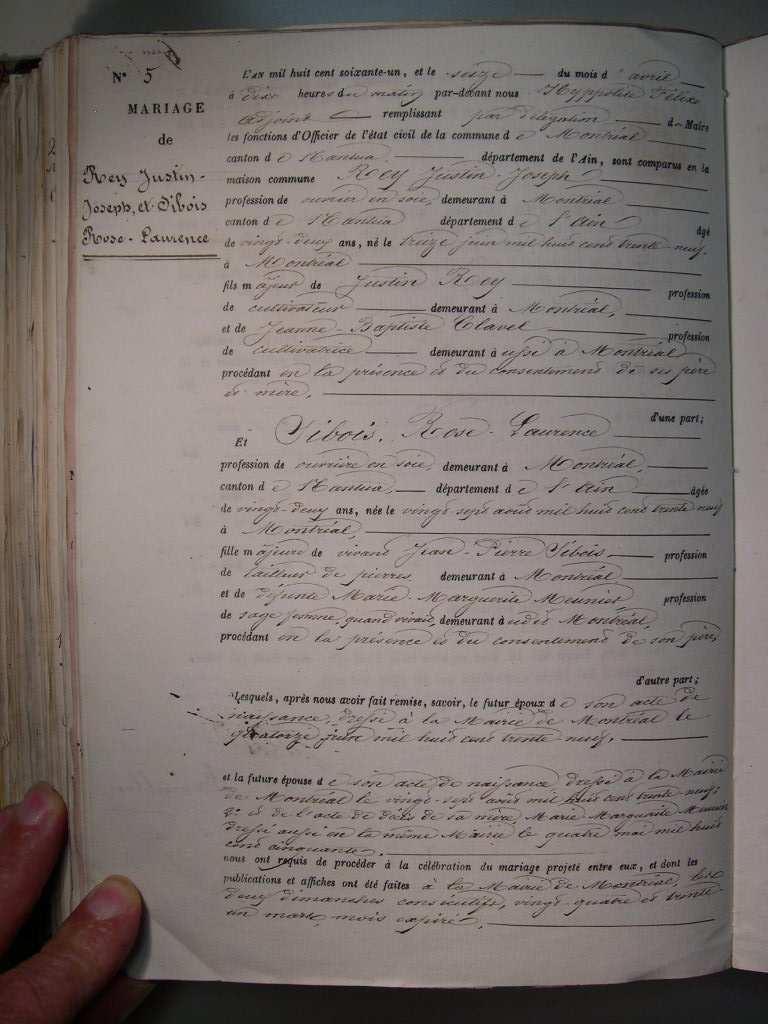 N° 5
MARIAGE
de
Rey Justin-
Joseph, et Sibois
Rose-Laurence
L'AN mil huit cent soixante-un, et le seize du mois d'avril
à dix heures du matin par-devant nous Hyppolite Félix
adjoint remplissant par délégation de Maire
les fonctions d'Officier de l'état civil de la commune de Montréal
canton de Nantua, département de l'Ain, sont comparus en la
maison commune Rey Justin-Joseph
profession de ouvrier en soie, demeurant à Montréal
canton de Nantua département de l'Ain âgé
de vingt-deux ans, né le treize juin mil huit cent trente-neuf.
à Montréal
fils majeur de Justin Rey profession
de cultivateur demeurant à Montréal,
et de Jeanne-Baptiste Clavel profession
de cultivatrice demeurant aussi à Montréal
procédant en la présence et du consentement de ses père
et mère,
d'une part;
Et Sibois, Rose-Laurence
profession de ouvrière en soie, demeurant à Montréal,
canton de Nantua, département de l'Ain âgée
de vingt-deux ans, née le vingt sept août mil huit cent trente neuf
à Montréal,
fille majeure de vivant Jean-Pierre Sibois profession
de tailleur de pierres, demeurant à Montréal
et de défunte Marie-Marguerite Meunier profession
de sage femme, quand vivait, demeurant audit Montréal,
procédant en la présence et du consentement de son père,
d'autre part;
Lesquels, après nous avoir fait remise, savoir, le futur époux de son acte de
naissance, dressé à la Mairie de Montréal le
quatorze juin mil huit cent trente-neuf,
et la future épouse de son acte de naissance dressé à la Mairie
de Montréal le vingt-sept août mil huit cent trente-neuf;
2° et de l'acte de décès de sa mère, Marie Marguerite Meunier
dressé aussi en la même Mairie le quatre mai mil huit
cent cinquante.
nous ont requis de procéder à la célébration du mariage projeté entre eux, et dont les
publications et affiches ont été faites à la Mairie de Montréal, les
deux dimanches consécutifs, vingt-quatre et trente-
un mars, mois expiré,